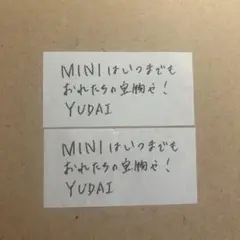 MINIはいつまでも
おれたちの宝物や!
YUDAI
MINIはいつまでも
おれたちの宝物や!
YUDAI